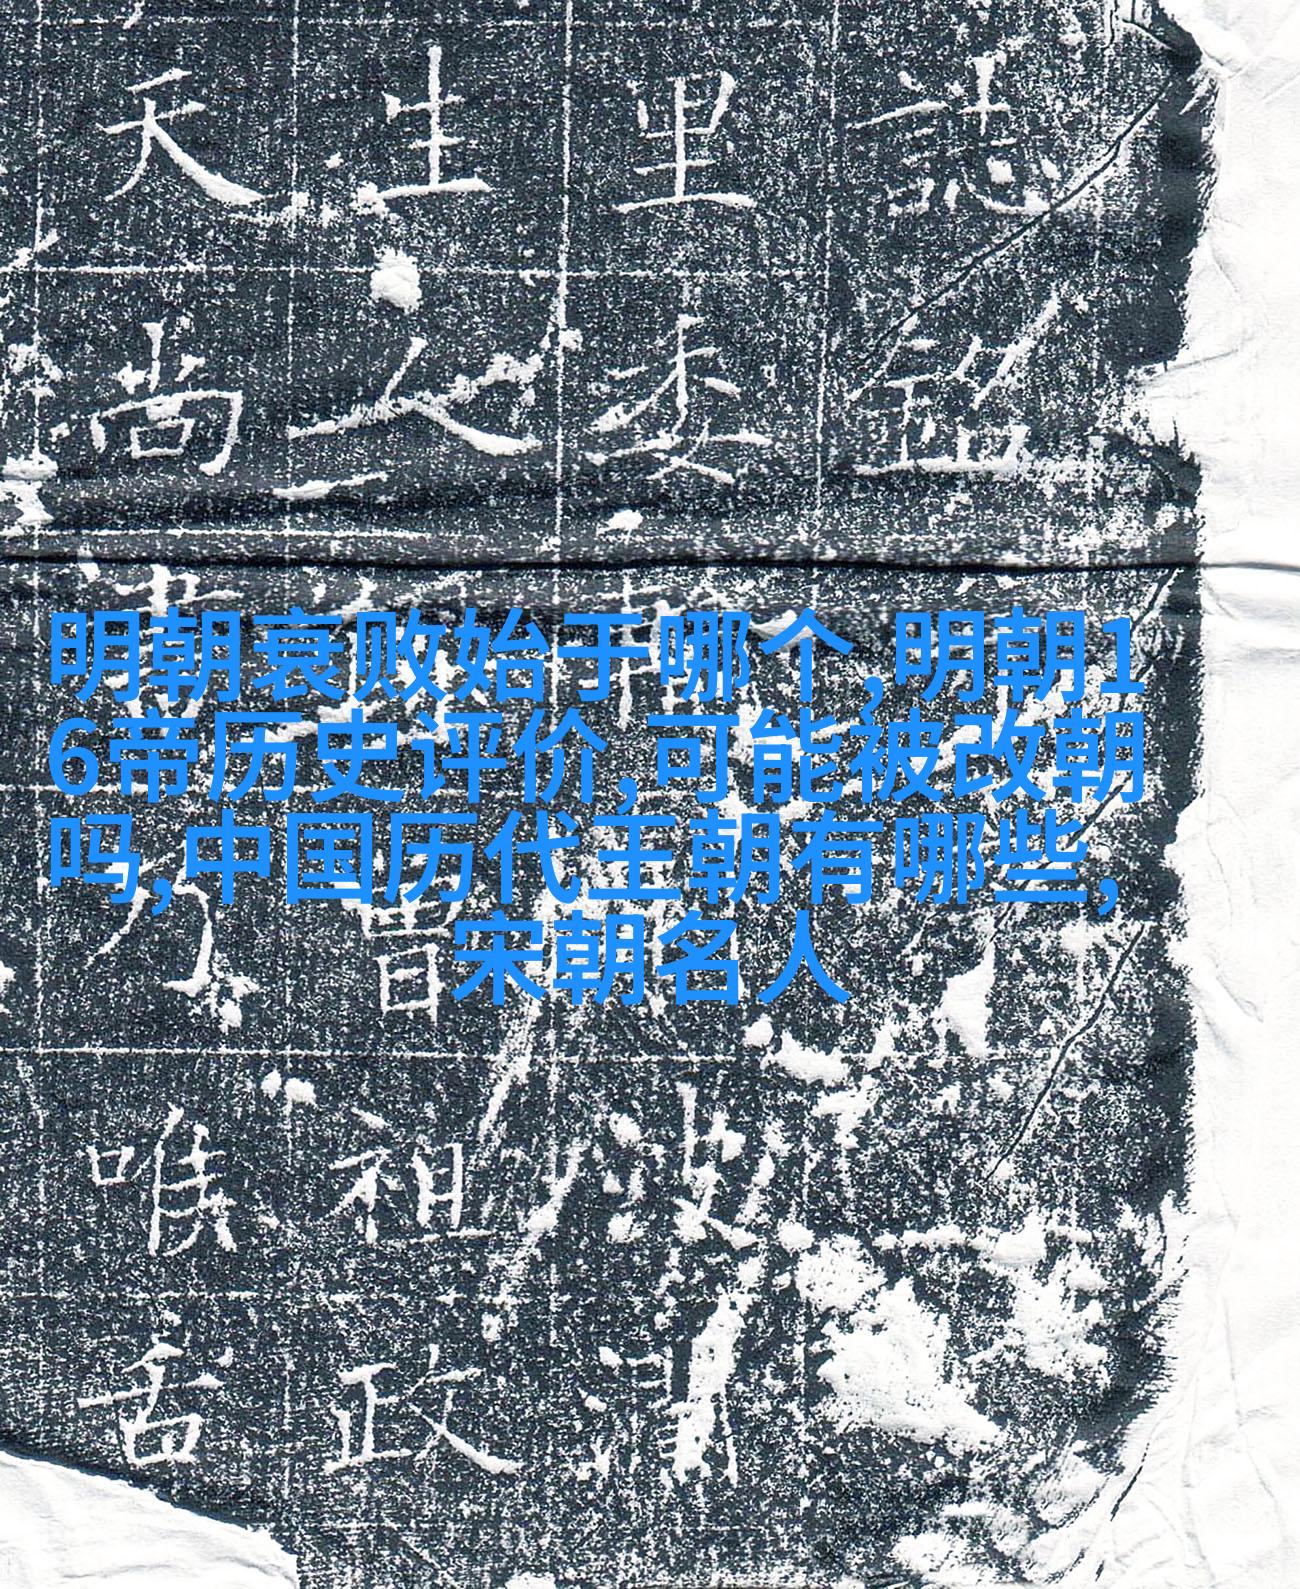 誌銘
里委
生人曾祖政
天尚乃喉舌
明朝衰败始于哪个,明朝1
6帝历史评价,可能被改朝
吗,中国历代王朝有哪些,
宋朝名人